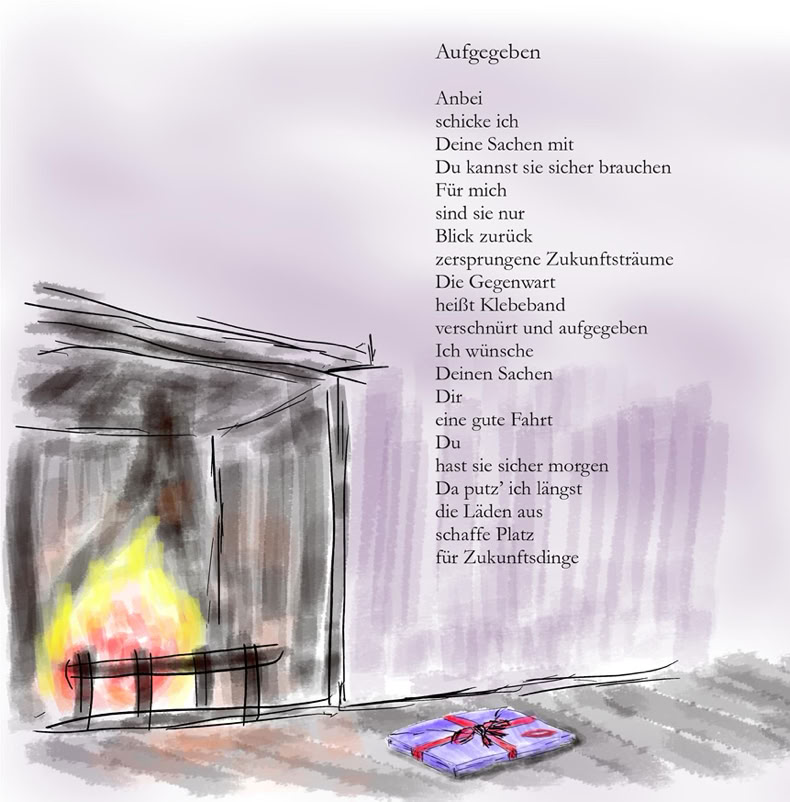 Aufgegeben
Anbei
schicke ich
Deine Sachen mit
Du kannst sie sicher brauchen
Für mich
sind sie nur
Blick zurück
zersprungene Zukunftsträume
Die Gegenwart
heißt Klebeband
verschnürt und aufgegeben
Ich wünsche
Deinen Sachen
Dir
eine gute Fahrt
Du
hast sie sicher morgen
Da putz’ ich längst
die Läden aus
schaffe Platz
für Zukunftsdinge